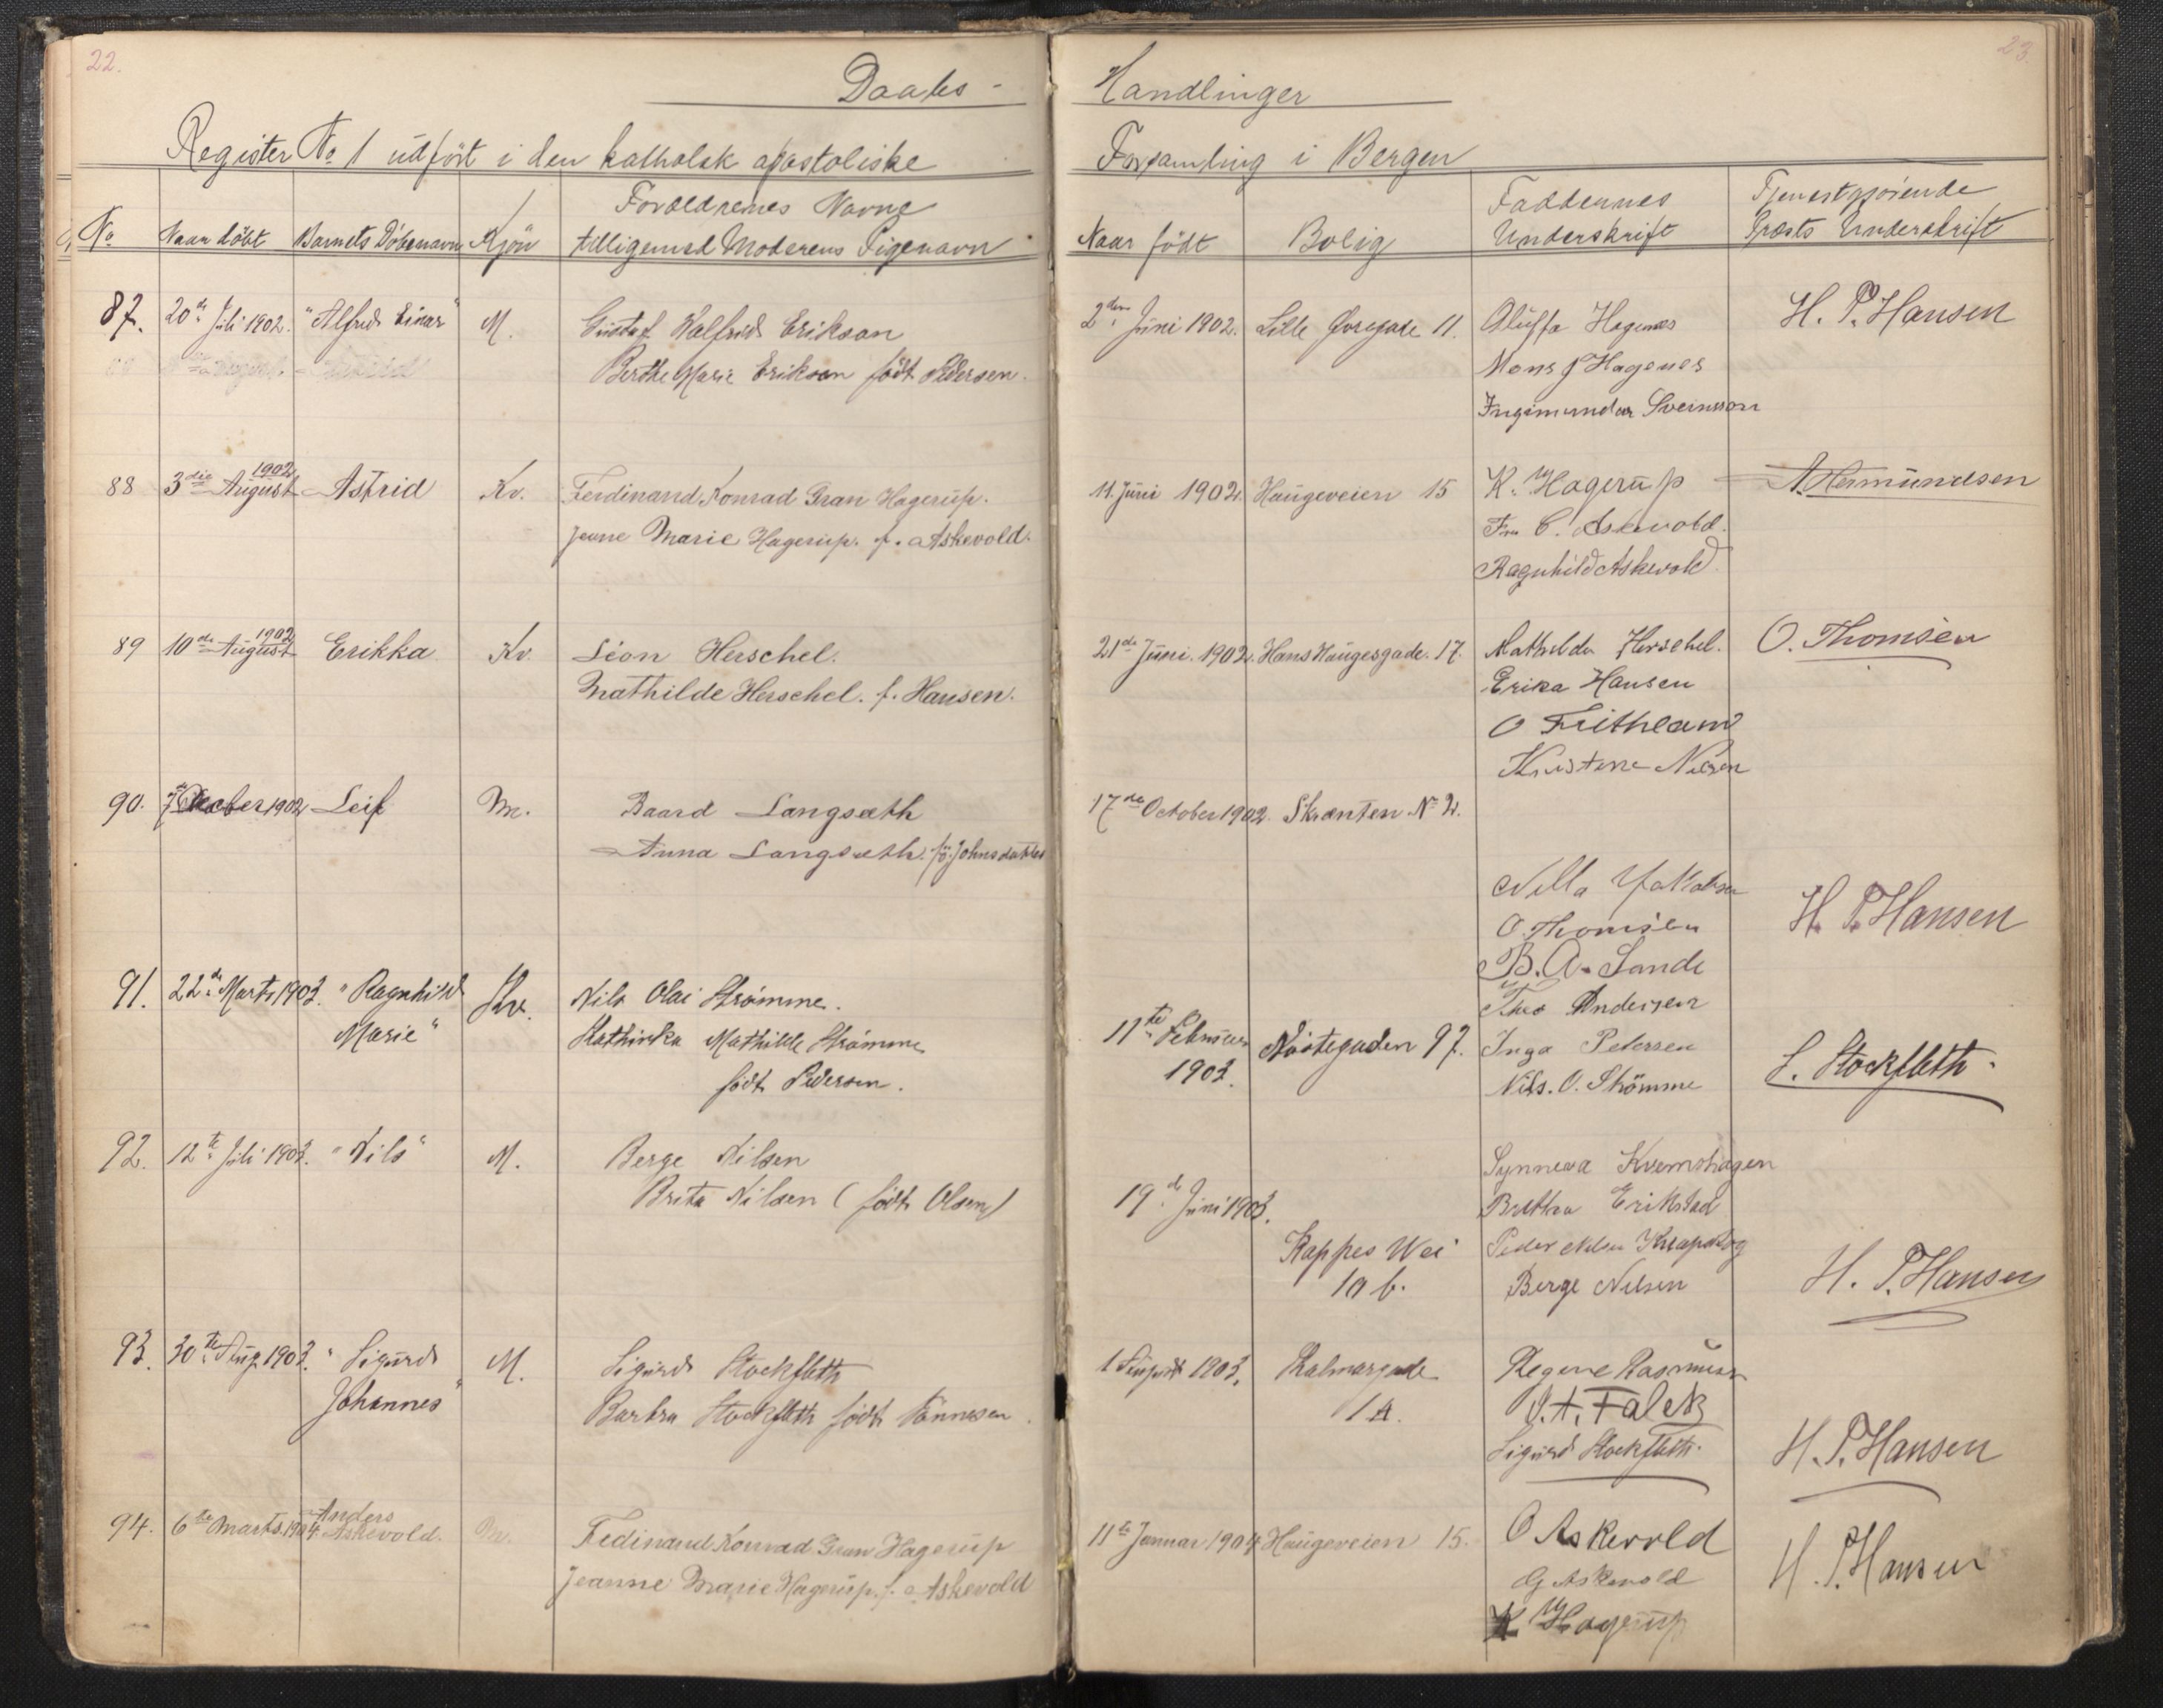 22.
Daabs-
Register No 1 udfört i den katholsk apostoliske
No
Naar döbt
Barnets Döbenavn
Kjön
Forældrenes Navne
tilligemed Moderens Pigenavn
87. 20de Juli 1902. "Alfred Einar" M. Gustaf Valfrid Erikson
Berthe Marie Erikson födt Pedersen.
88 3die August 1902 Astrid Kv. Ferdinand Konrad Gran Hagerup.
Jeane Marie Hagerup. f. Askevold.
89 10de August 1902 Erikka Kv. Léon Herschel.
Mathilde Herschel. f. Hansen.
90. October 1902 Leif M. Baard Langsæth
Anna Langsæth. fö. Johnsdatter
91. 22de Marts 1903. "Ragnhild Kv. Nils Olai Strömme.
Marie" Kathinka Mathilde Strömme
födt Pedersen.
92. 12te Juli 1903. "Nils" M. Berge Nilsen
Brita Nilsen (födt Olsen)
93. 30te Aug. 1903. "Sigurd M. Sigurd Stockfleth
Johannes" Barbra Stockfleth födt Tönnesen.
94. 6te Marts. 1904. Anders
Askevold. M. Fedinand Konrad Gran Hagerup
Jeanne Marie Hagerup. f. Askevold
23.
Handlinger
Forsamling i Bergen
Naar födt
Bolig
Faddernes
Underskrift
Tjenestgjöiende
Præsts Underskrift
2den Juni 1902. Lille Øvregade 11. Oluffa Hagenes H. P. Hansen
Mons J Hagenes
Ingimundur Sveinsson
11. Juni 1902. Haugeveien 15 K. Hagerup A. Hermundsen
Fru C. Askevold.
Ragnhild Askevold.
21de Juni. 1902. Hans Haugesgade. 17. Mathilde Herschel. O. Thomsen
Erika Hansen
O Frithleam
Kristine Nilsen
17de October 1902. Skrænten No 2.
Nella
O. Thomsen H. P. Hansen
B. A. Sande
Theo Andersen
11te Februar Nöstegaden 97. Inga Petersen
1903. Nils. O. Strömme S. Stockfleth.
Synneva Kvernhagen
19de Juni 1903. Brithea Erikstad
Kappes Wei Peder Nilsen Knapskog
10 b. Berge Nilsen H. P. Hansen
1 August 1903. Kalmargade Regine Rasmussen
1 A. J. A. Falck
Sigurd Stockfleth. H. P. Hansen
11te Januar 1904 Haugeveien 15. O Askevold
G Askevold H. P. Hansen
K Hagerup